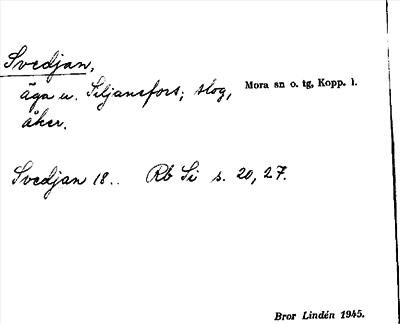 Svedjan,
äga u. Siljansfors; slog, Mora sn o. tg, Kopp. l.
åker.
Svedjan 18.. Rb Si s. 20, 27.
Bror Lindén 1945.